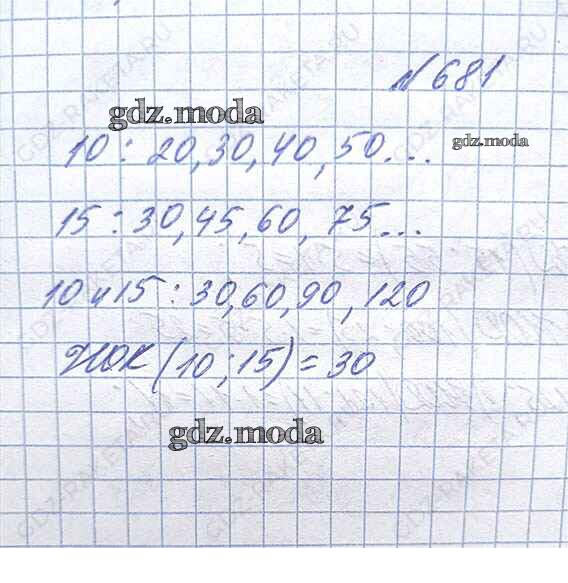 N681
gdz.moda
10: 20,30,40,50...
gdz.moda
15: 30,45,60,75...
10 и 15: 30,60,90,120
НОК (10;15) = 30
gdz.moda